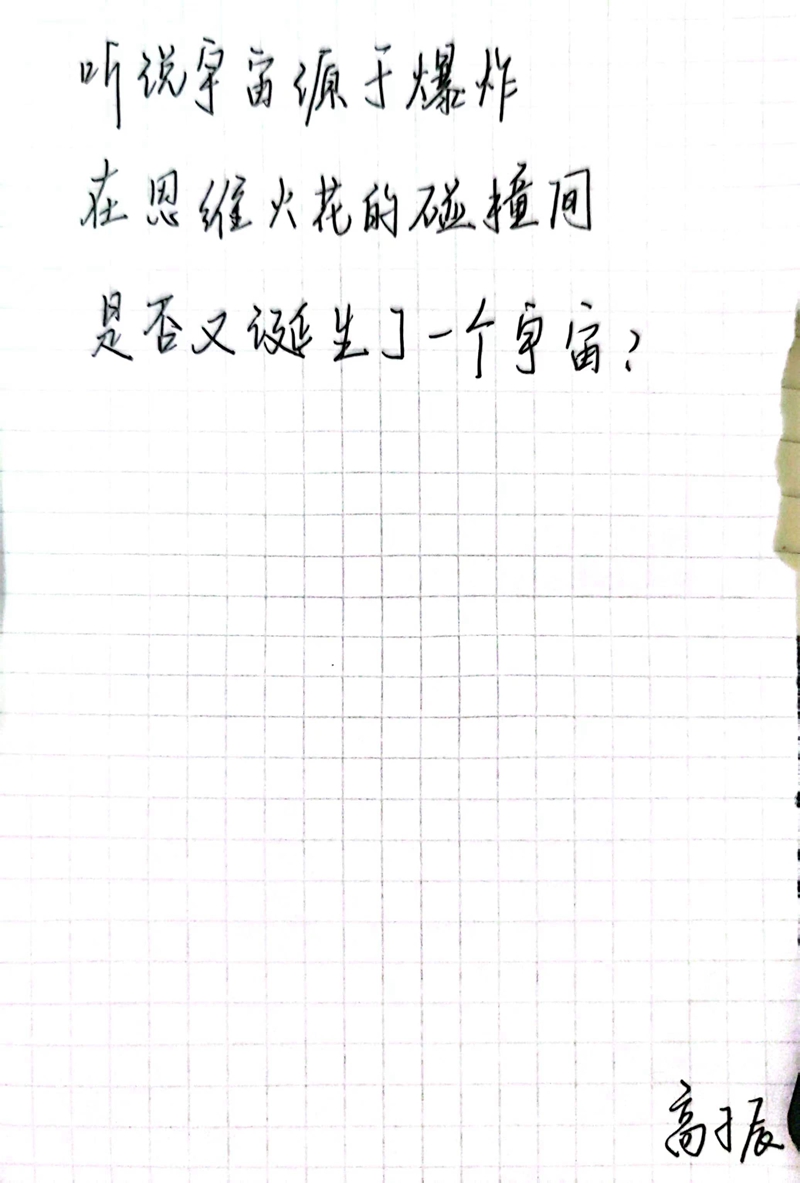 听说宇宙源于爆炸
在思维火花的碰撞间
是否又诞生了一个宇宙?
高于辰